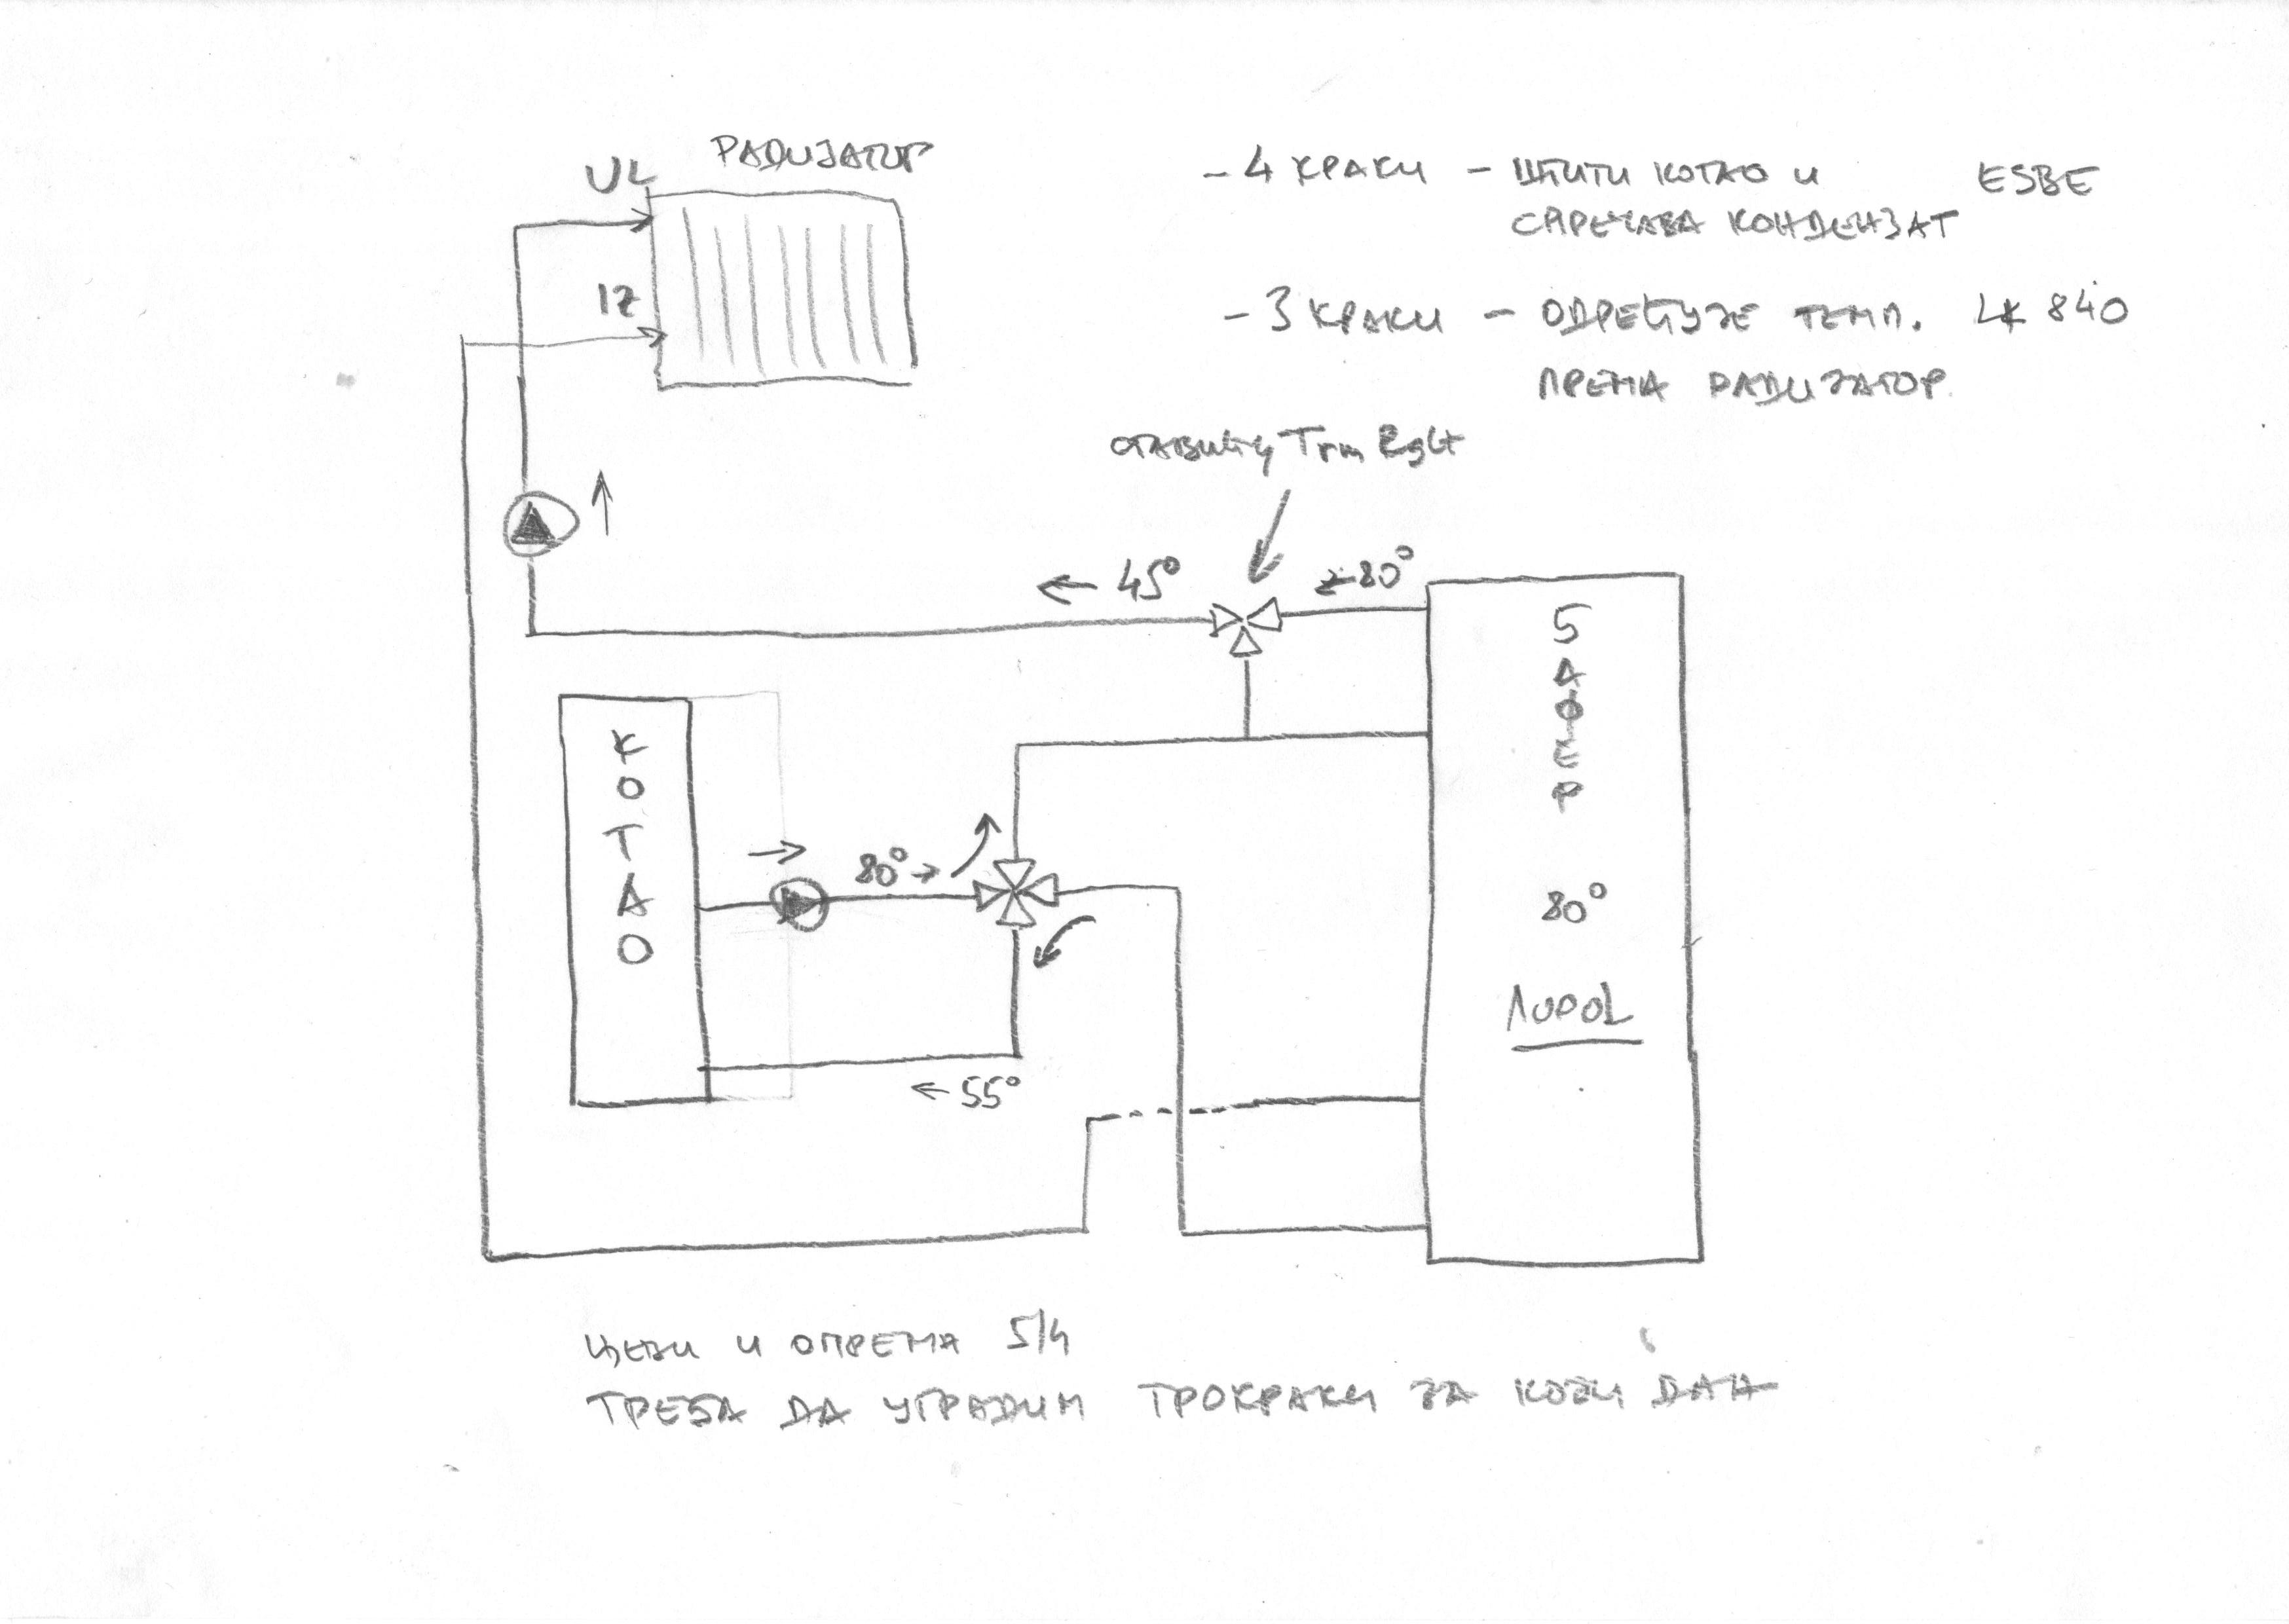 РАДИЈАТОР
UL
IZ
- 4 КРАКИ - ШТИТИ КОТАО И ESBE
СПРЕЧАВА КОНДЕНЗАТ
- 3 КРАКИ - ОДРЕЂУЈЕ ТЕМП. LK 840
ПРЕМА РАДИЈАТОР.
← 45° ← 80°
БАФЕР
80°
КОТАО
80° →
← 55°
ЦЕВИ И ОПРЕМА 5/4
ТРЕБА ДА УГРАДИМ ТРОКРАКИ ЗА КОЈИ ДАН